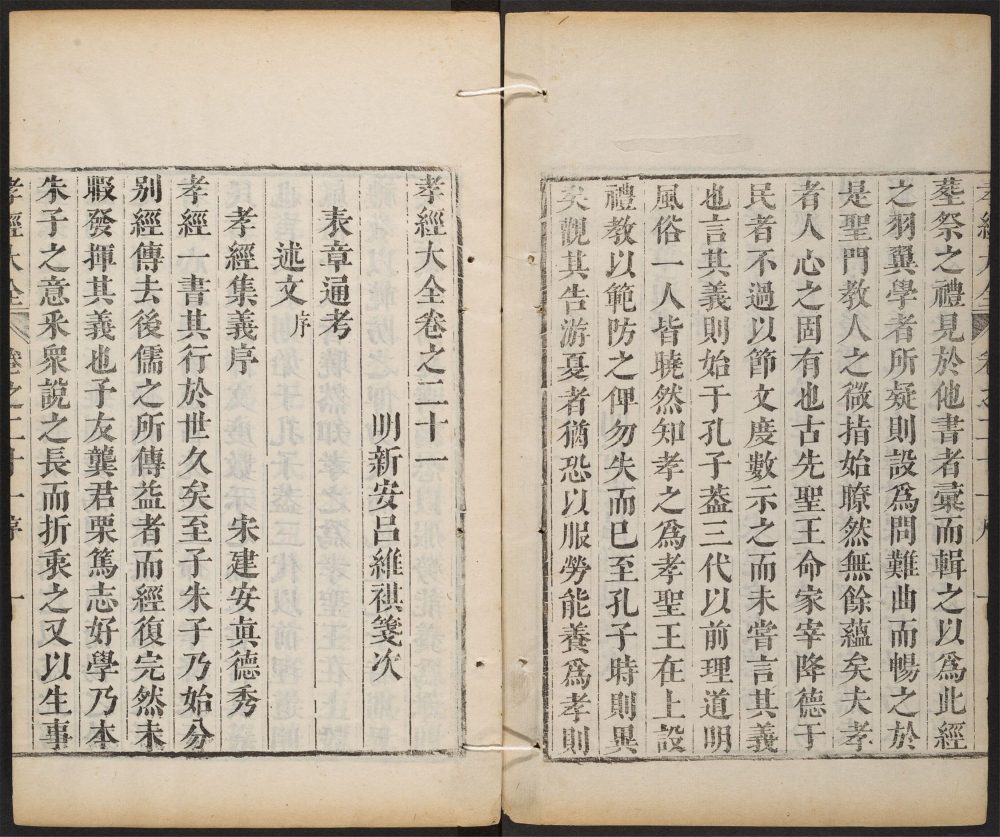 孝經大全卷之二十一
明新安呂維祺箋次
表章通考
述文序
孝經集義序　宋建安眞德秀
孝經一書其行於世久矣至子朱子乃始分
別經傳去後儒之所傳益者而經復完然未
暇發揮其義也子友龔君栗篤志好學乃本
朱子之意釆衆說之長而折衷之又以生事
孝經大全　卷之二十一　序　一
葬祭之禮見於他書者彙而輯之以爲此經
之羽翼學者所疑則設爲問難曲而暢之於
是聖門教人之微指始瞭然無餘蘊矣夫孝
者人心之固有也古先聖王命家宰降德于
民者不過以節文度數示之而未嘗言其義
也言其義則始于孔子葢三代以前理道明
風俗一人皆曉然知孝之爲孝聖王在上設
禮教以範防之俾勿失而已至孔子時則異
矣觀其告游夏者猶恐以服勞能養爲孝則